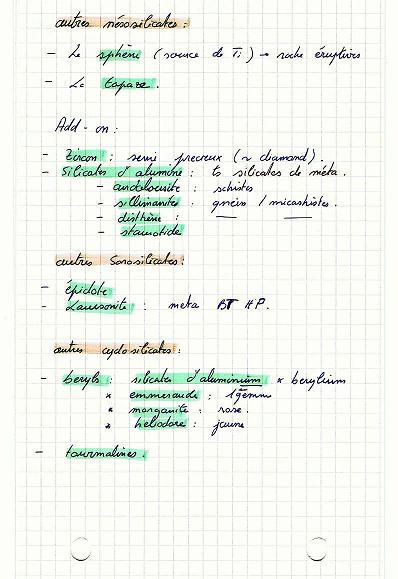 autres nésosilicates :
- Le sphène (source de Ti) → roche éruptives
- La topaze.
Add-on :
- Zircon : semi precieux (~ diamand).
- Silicates d'alumine : ts silicates de méta.
- andalousite : schistes
- sillimanites : gneiss / micashistes.
- disthène : — —
- staurotide
autres Sorosilicates :
- épidote
- Lawsonite : meta BT HP.
autres cyclosilicates :
- beryls : silicates d'aluminium * berylium
* emmeraude :
* morganite : rose.
* heliodore : jaune
- tourmalines.